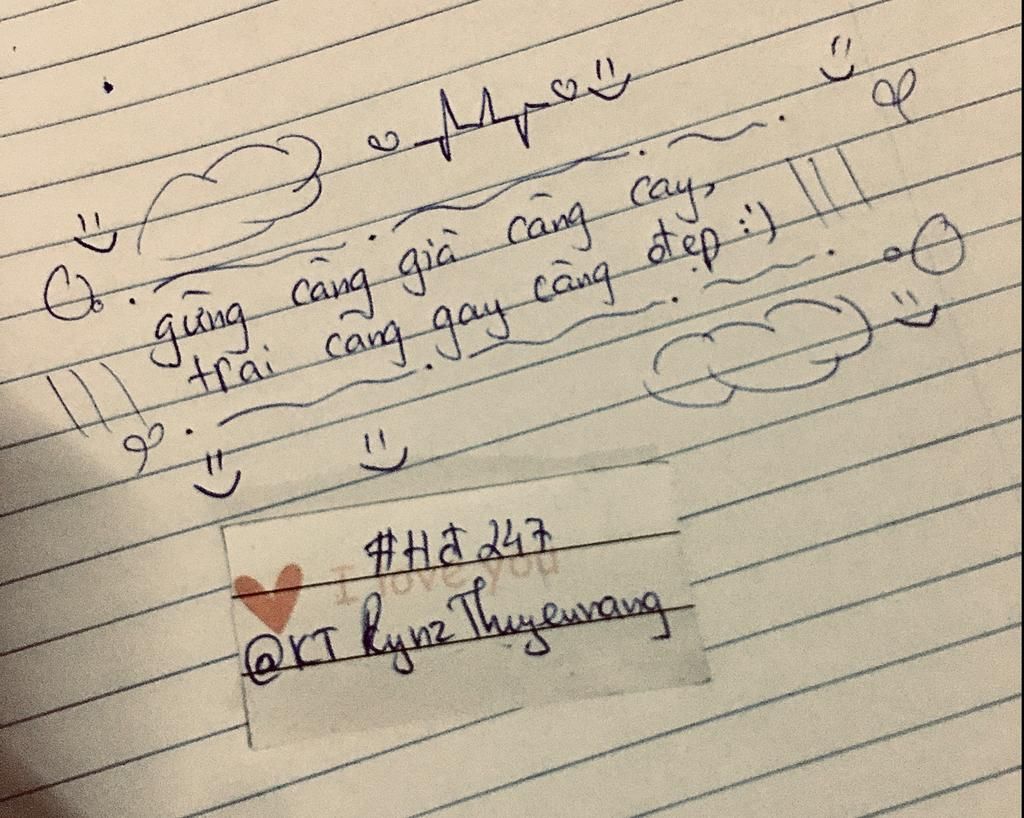 gừng càng già càng cay,
trai càng gay càng đẹp :')
#Hđ 247
I love you
@KT Rynz Thuyeurang